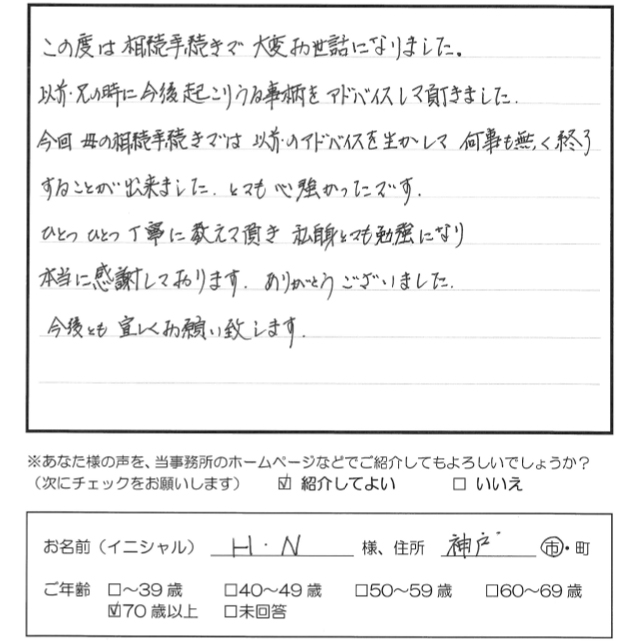 この度は相続手続きで大変お世話になりました。
以前・兄の時に今後起こりうる事柄をアドバイスして頂きました.
今回 母の相続手続きでは 以前のアドバイスを生かして 何事も無く終了
することが出来ました. とても心強かったです.
ひとつひとつ丁寧に教えて頂き 私自身とても勉強になり
本当に感謝しております. ありがとうございました.
今後とも宜しくお願い致します.
※あなた様の声を、当事務所のホームページなどでご紹介してもよろしいでしょうか？
（次にチェックをお願いします） ☑ 紹介してよい □ いいえ
お名前（イニシャル） H・N 様、住所 神戸 市・町
ご年齢 □～39歳 □40～49歳 □50～59歳 □60～69歳
☑70歳以上 □未回答